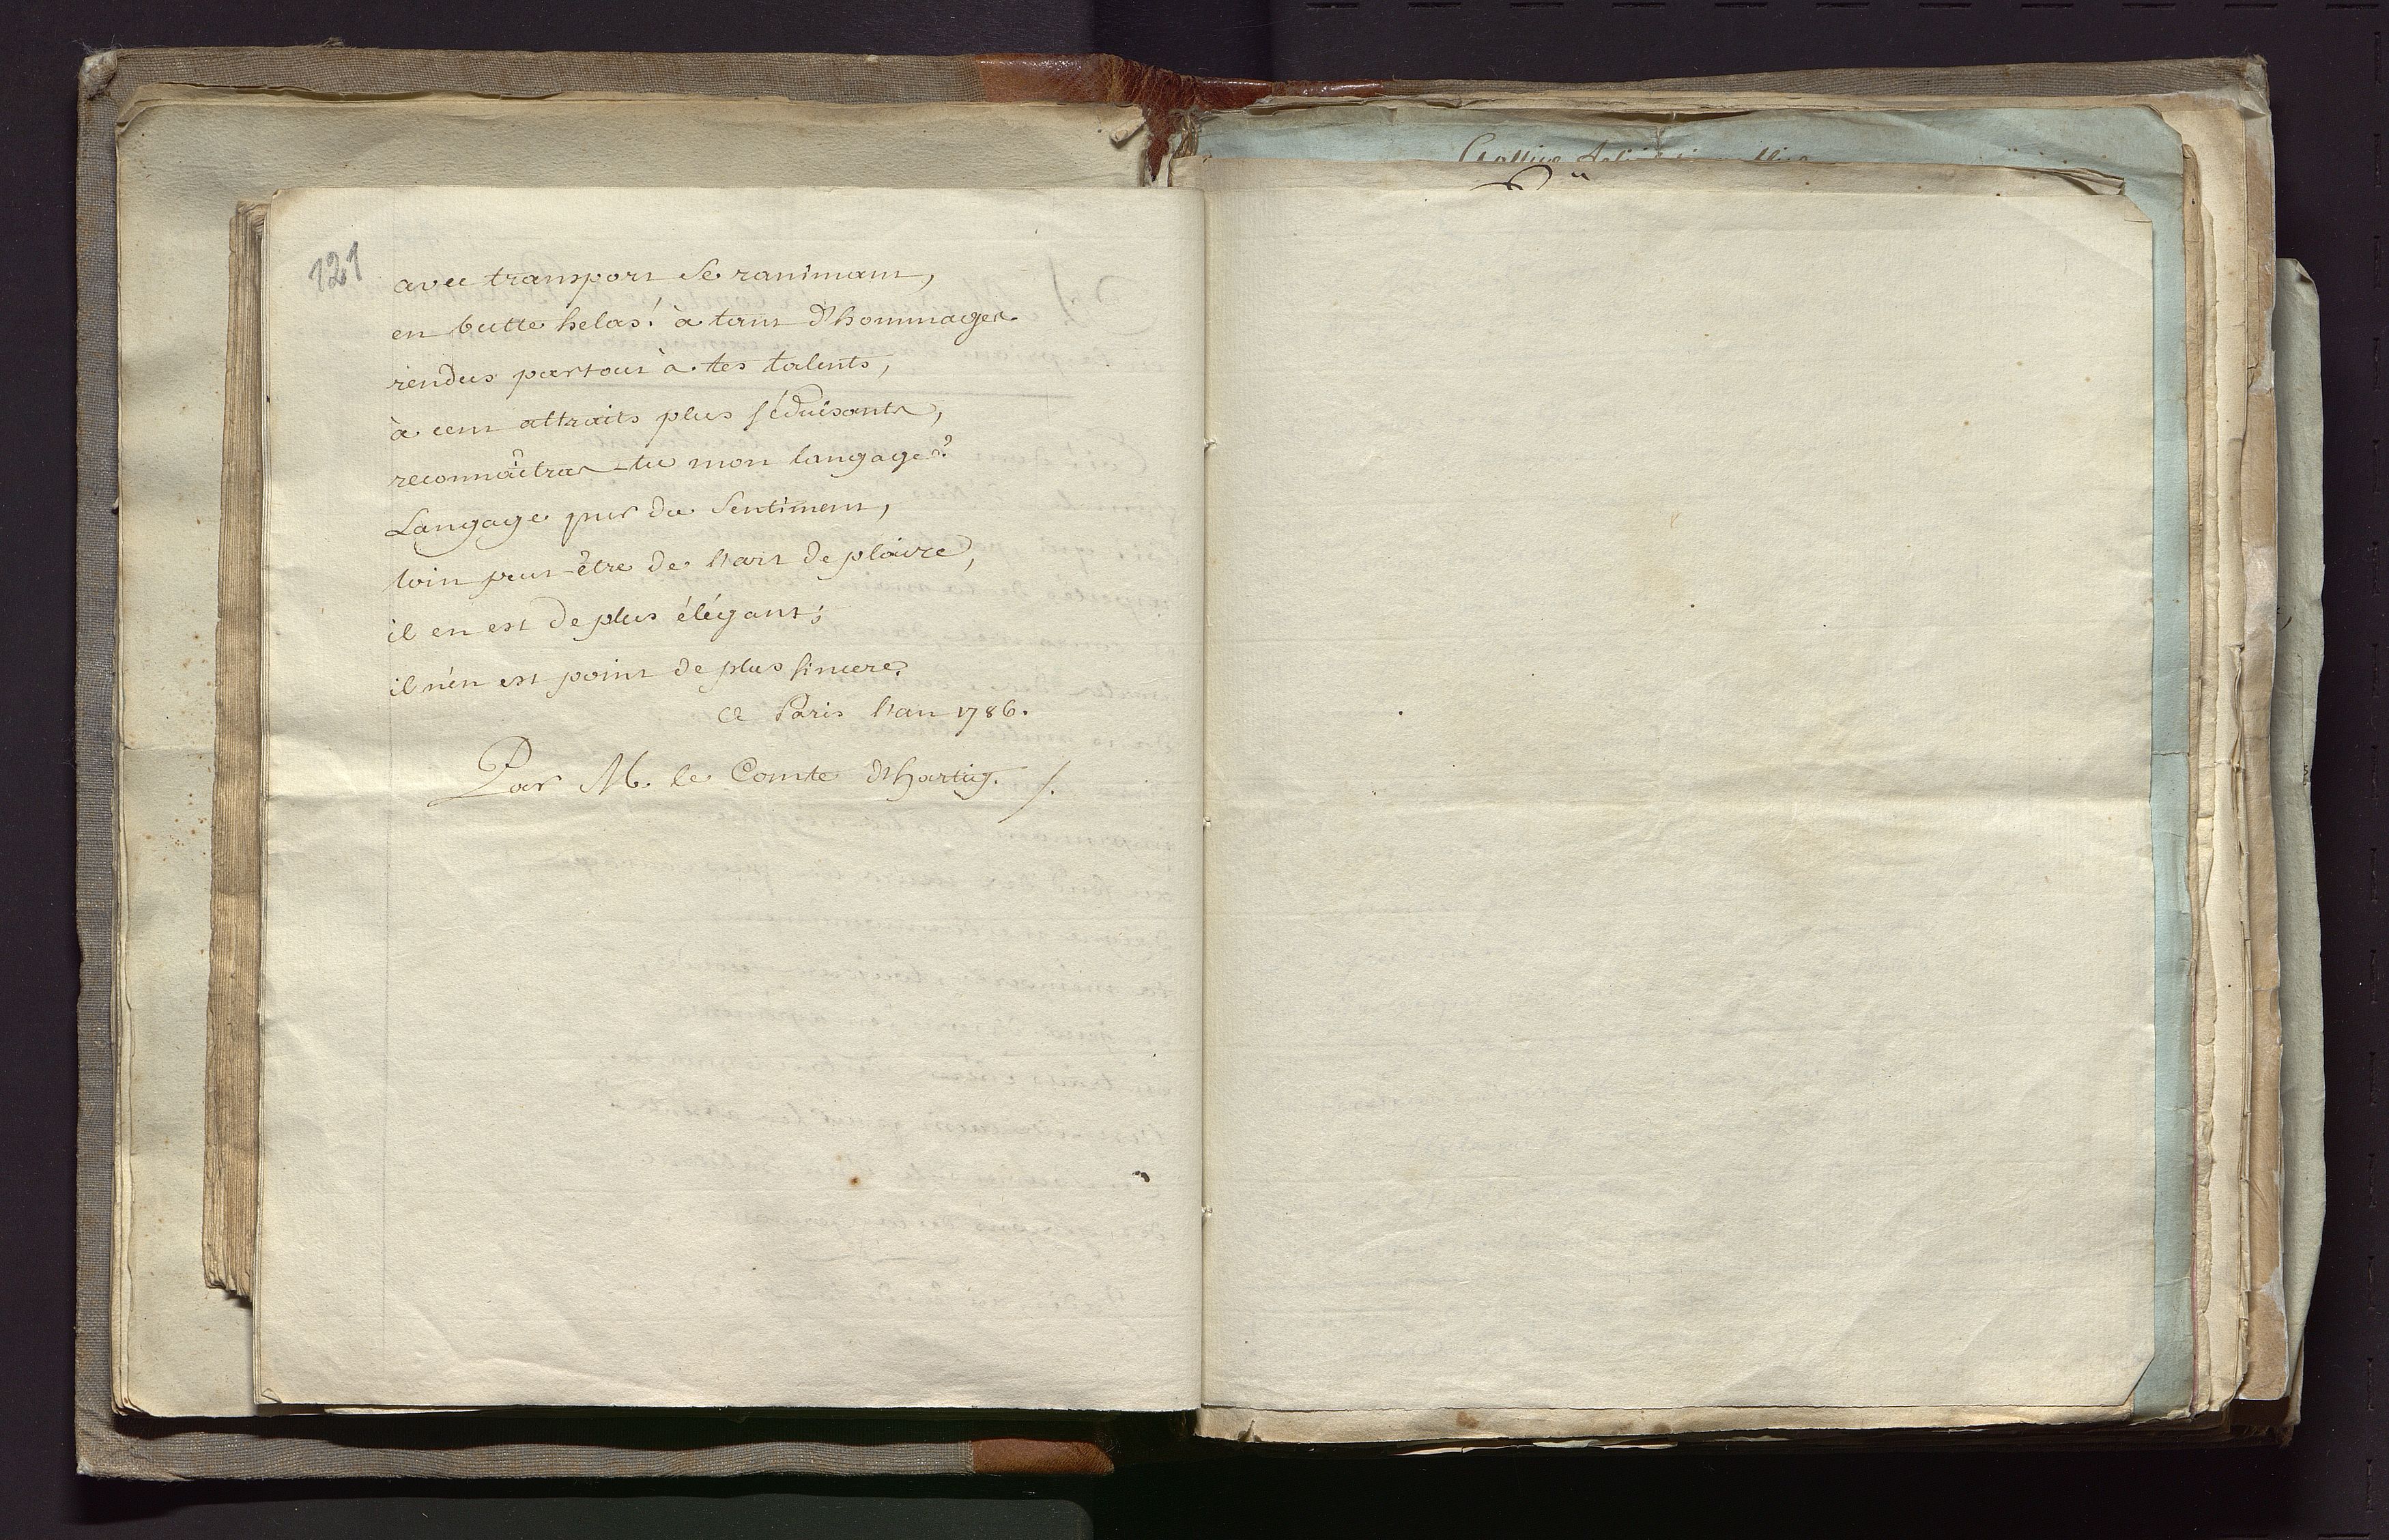 121
avec transport se ranimant,
en butte helas! à tant d'hommages
rendus partout à tes talents,
à cent attraits plus séduisants,
reconnaîtras-tu mon langage?
Langage pur du Sentiment,
loin peut-être de l'art de plaire,
il en est de plus élégant;
il n'en est point de plus sincere.
à Paris l'an 1786.
Par M. le Comte d'hartig. /.